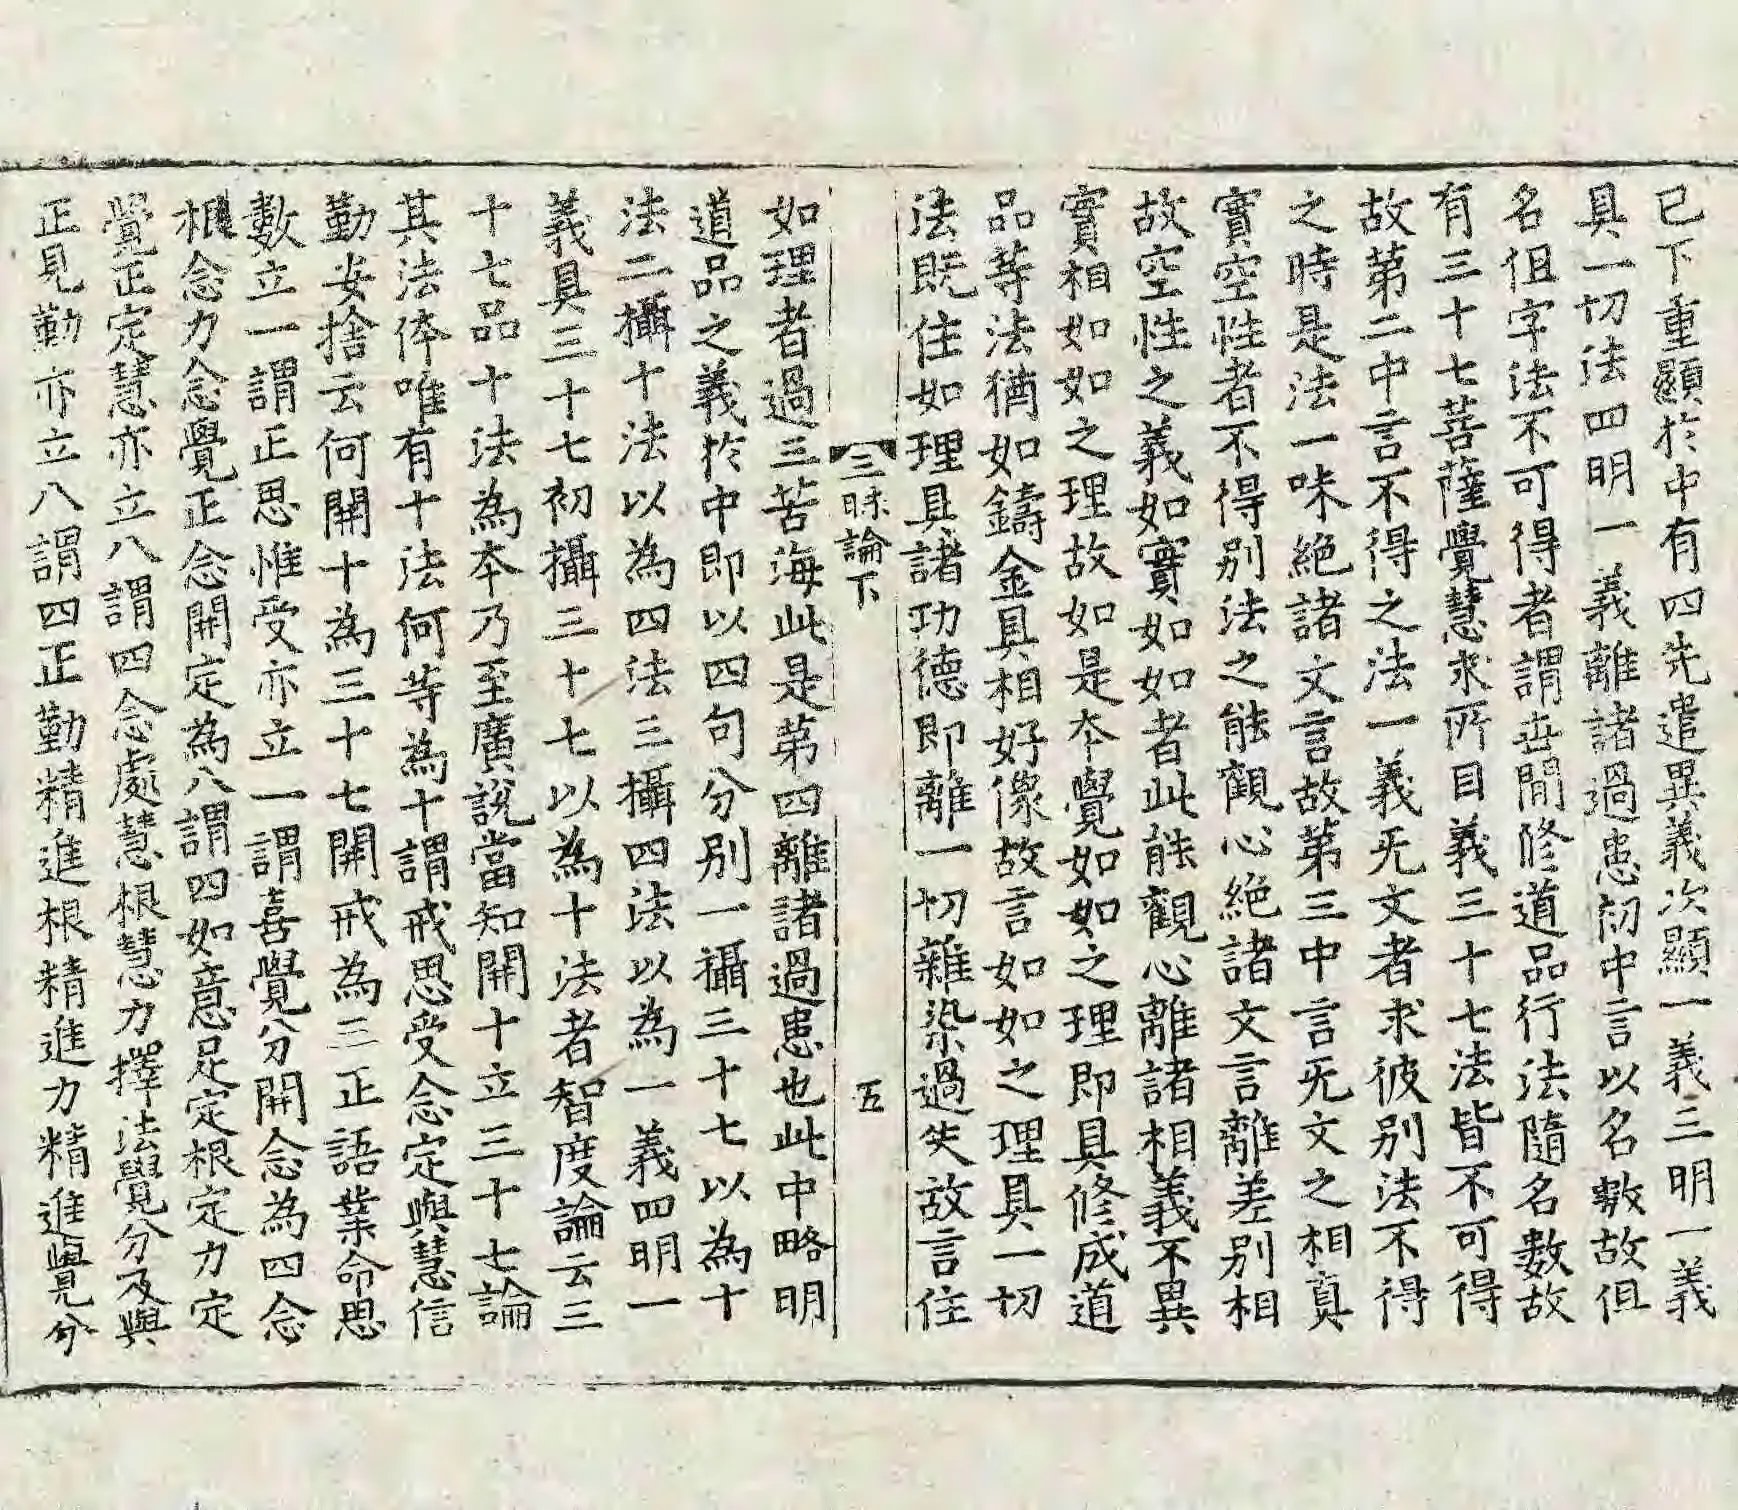 已下重顯於中有四先遣異義次顯一義三明一義
具一切法四明一義離諸過患初中言以名數故但
名但字法不可得者謂世間修道品行法隨名數故
有三十七菩薩覺慧求所目義三十七法皆不可得
故第二中言不得之法一義无文者求彼別法不得
之時是法一味絕諸文言故第三中言无文之相真
實空性者不得別法之能觀心絕諸文言離差別相
故空性之義如實如如者此能觀心離諸相義不異
實相如如之理故如是本覺如如之理即具修成道
品等法猶如鑄金具相好像故言如如之理具一切
法既住如理具諸功德即離一切雜染過失故言住
三昧論下 五
如理者過三苦海此是第四離諸過患也此中略明
道品之義於中即以四句分別一攝三十七以為十
法二攝十法以為四法三攝四法以為一義四明一
義具三十七初攝三十七以為十法者智度論云三
十七品十法為本乃至廣說當知開十立三十七論
其法体唯有十法何等為十謂戒思受念定與慧信
勤安捨云何開十為三十七開戒為三正語業命思
數立一謂正思惟受亦立一謂喜覺分開念為四念
根念力念覺正念開定為八謂四如意足定根定力定
覺正定慧亦立八謂四念處慧根慧力擇法覺分及與
正見勤亦立八謂四正勤精進根精進力精進覺分